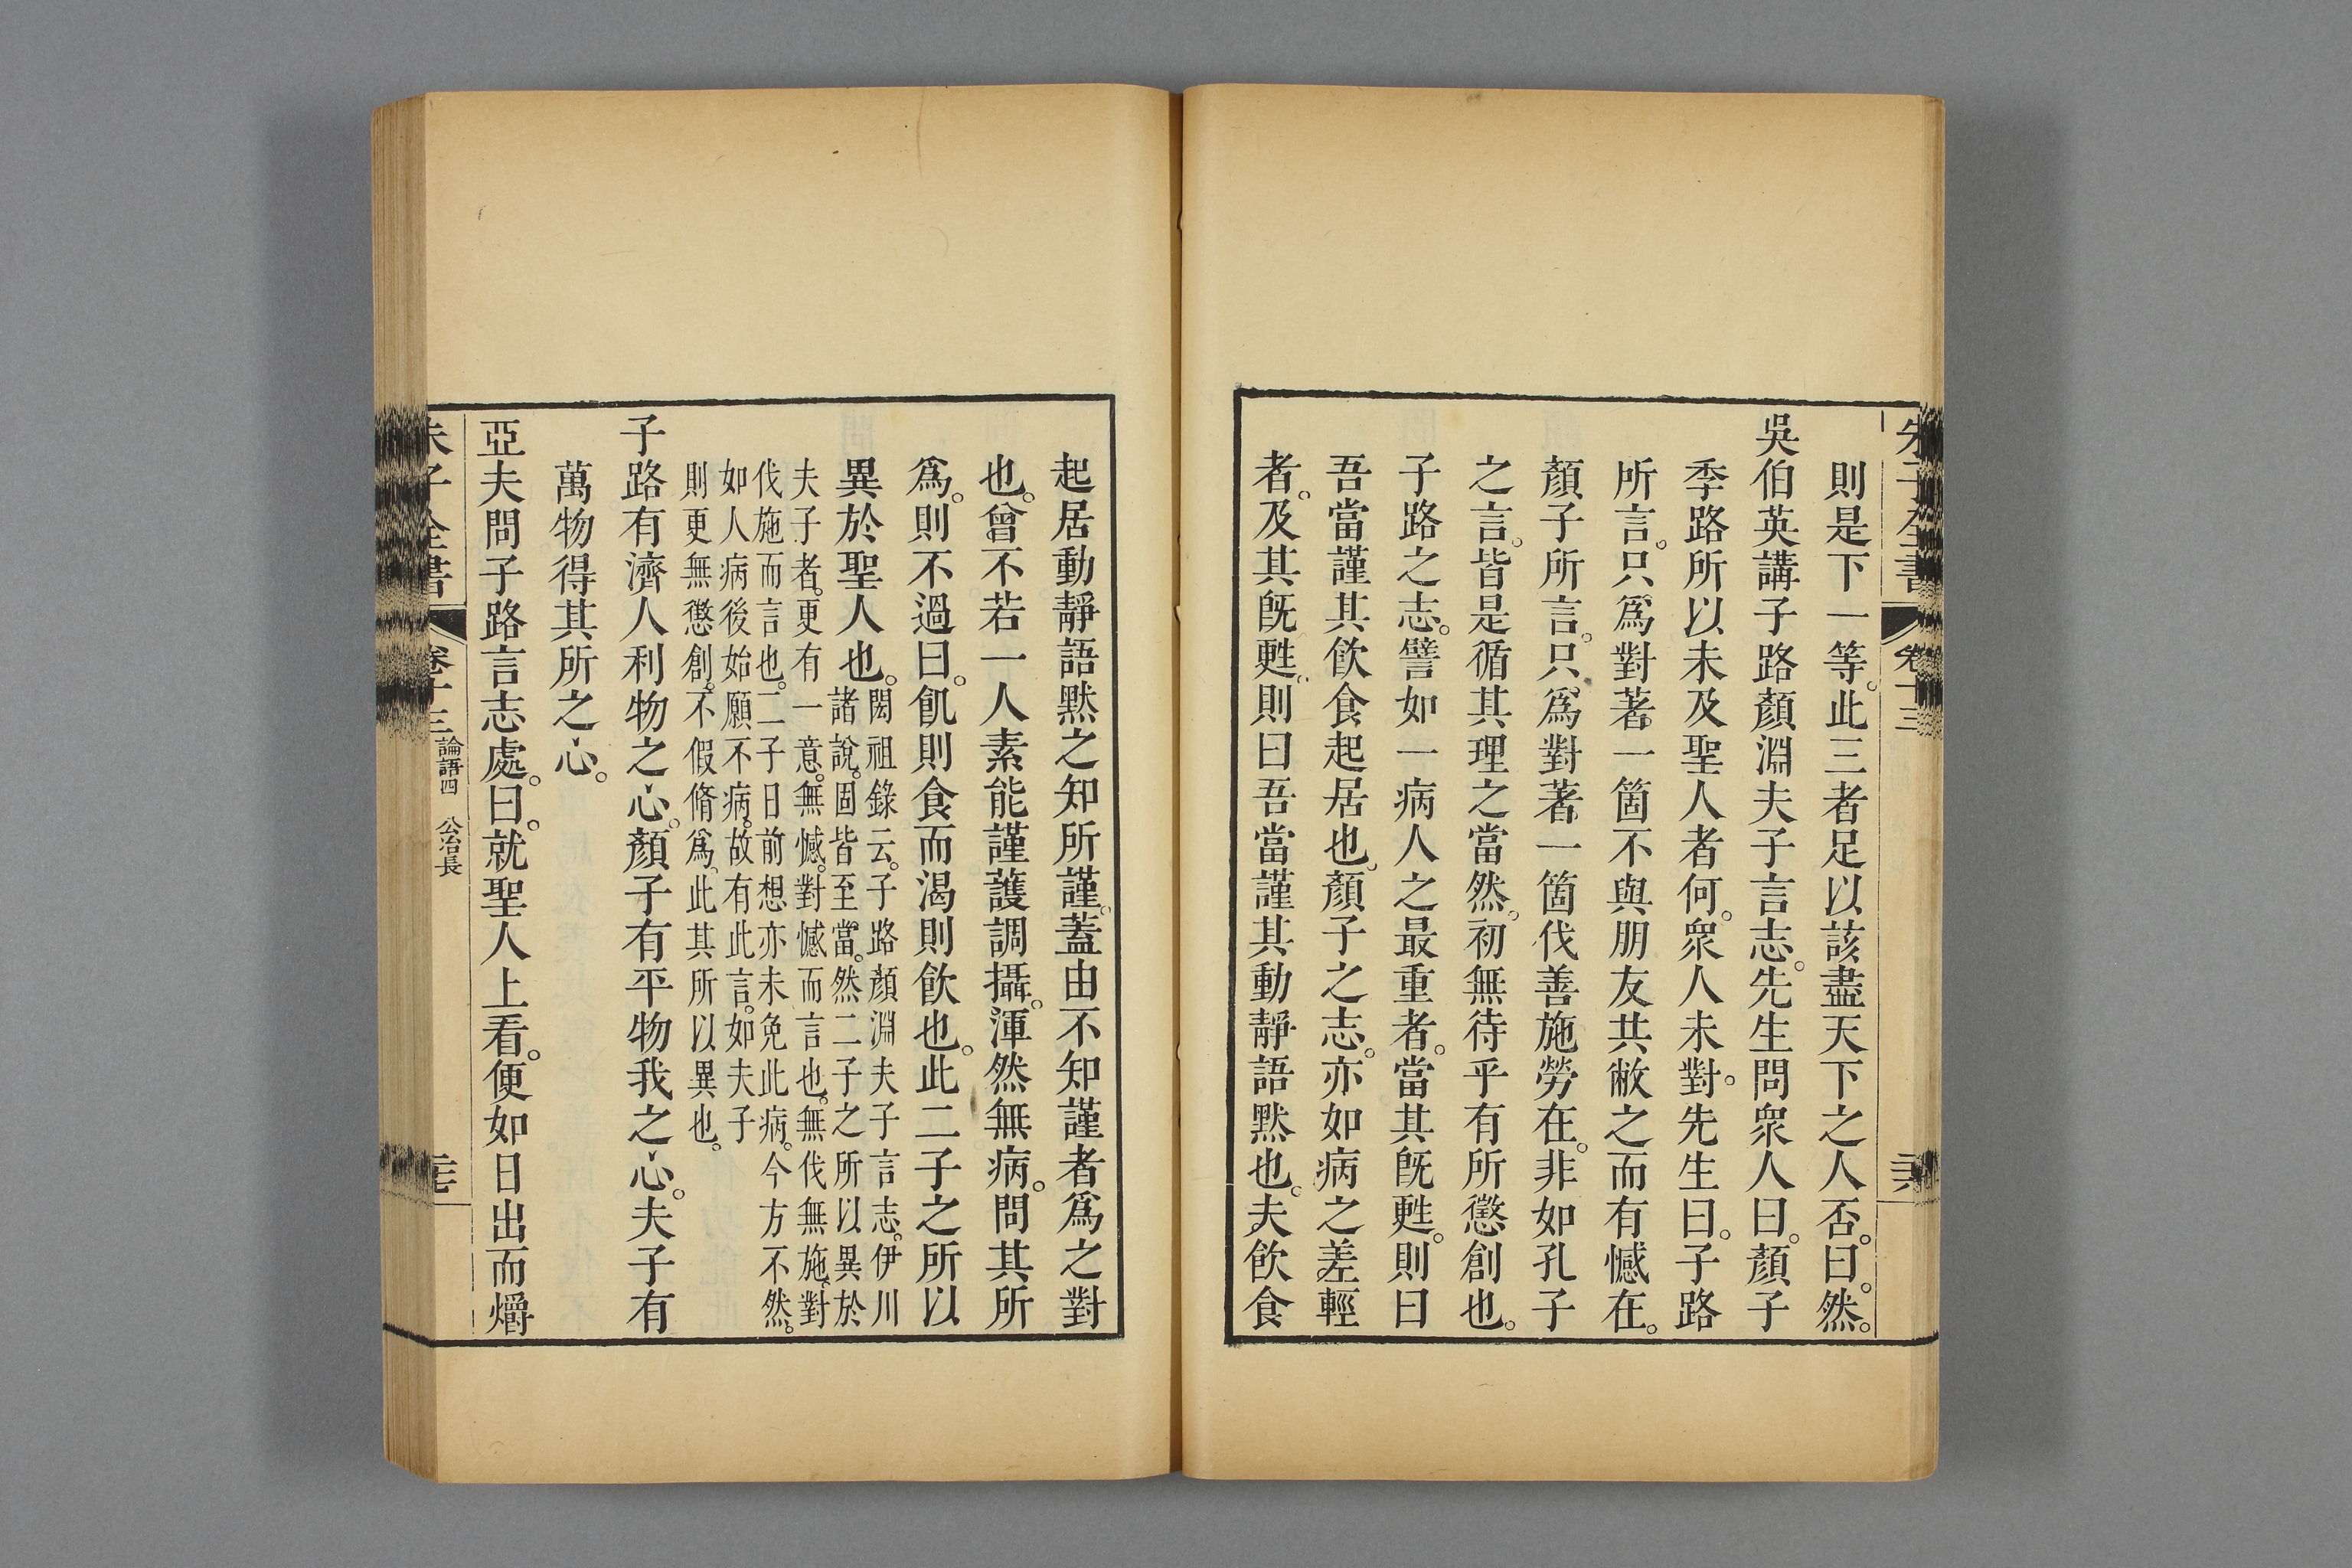 朱子全書 卷十三
則是下一等。此三者足以該盡天下之人否。曰。然。
吳伯英講子路顏淵夫子言志。先生問衆人曰。顏子
季路所以未及聖人者何。衆人未對。先生曰。子路
所言。只爲對著一箇不與朋友共敝之而有憾在。
顏子所言。只爲對著一箇伐善施勞在。非如孔子
之言。皆是循其理之當然。初無待乎有所懲創也。
子路之志。譬如一病人之最重者。當其旣甦。則曰
吾當謹其飲食起居也。顏子之志。亦如病之差輕
者。及其旣甦。則曰吾當謹其動靜語默也。夫飲食
起居動靜語默之知所謹。蓋由不知謹者爲之對
也。曾不若一人素能謹護調攝。渾然無病。問其所
爲。則不過曰。飢則食而渴則飲也。此二子之所以
異於聖人也。
閎祖錄云。子路顏淵夫子言志。伊川
諸說。固皆至當。然二子之所以異於
夫子者。更有一意。無憾。對憾而言也。無伐無施。對
伐施而言也。二子日前想亦未免此病。今方不然。
如人病後始願不病。故有此言。如夫子
則更無懲創。不假脩爲。此其所以異也。
子路有濟人利物之心。顏子有平物我之心。夫子有
萬物得其所之心。
亞夫問子路言志處。曰。就聖人上看。便如日出而爝
朱子全書 卷十三 論語四 公冶長